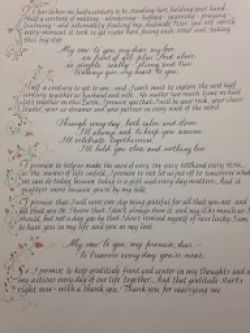 I have taken me half a century to be standing here, holding your hand.
that's a century of waiting - wondering - hoping - yearning - praying -
learning - and ultimately finding my soulmate. Peter, you are worth
every moment it took to get right here, facing each other and taking
this big step.
My vow to you, my dear, my love
on part of all else. And above
is simple, really - strong and true:
I always give my heart to you.
Half a century to get to you - and I can't wait to explore the next half
century together as husband and wife. No matter how much time we have
left together on this Earth, I promise you that I will be your rock, your cheer-
leader, your co-dreamer and your partner in every sense of the word.
Through every day, both calm and storm
I'll always seek to keep you warm
I'll celebrate togetherness
I'll hold you close, and nothing less
I promise to help us make the most of every day, every month and every year,
as the seasons of life unfold. I promise to not let us put off to tomorrow what
we can do today, because today is a gift and every day matters. And it
matters more because you're by my side.
I promise that I will never ever stop being grateful for all that you are and
all that you do. I know that I don't always show it and my say it as much as I
should, but not a day goes by that I don't remind myself of how lucky I am
to have you in my life and you as my love.
My vow to you, my promise, dear -
to treasure every day you're near.
So I promise to keep gratitude front and center in my thoughts and in
my actions every day of our life together. And that gratitude starts
right now - with a thank you. Thank you for marrying me.